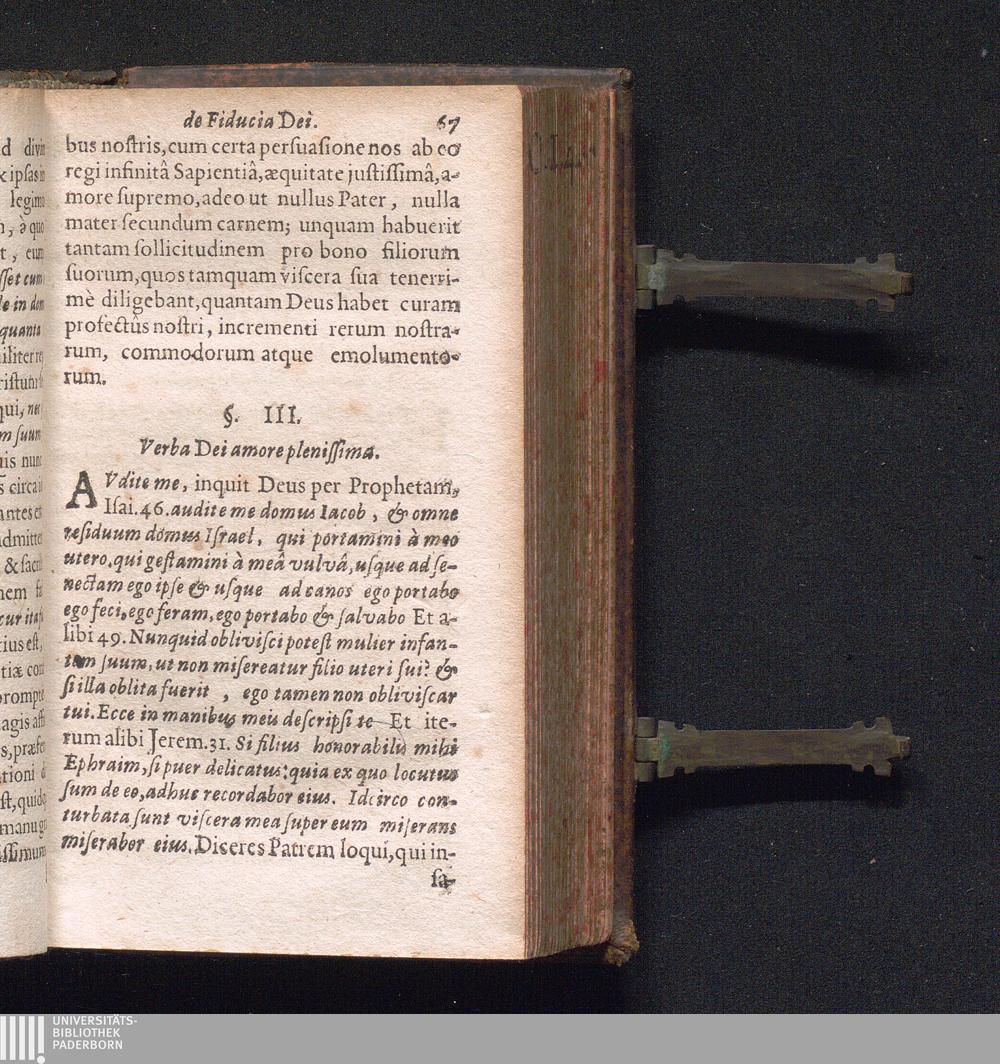 de Fiducia Dei. 67
bus noſtris, cum certa perſuaſione nos ab eo
regi infinitâ Sapientiâ, æquitate juſtiſſimâ, a-
more ſupremo, adeo ut nullus Pater, nulla
mater ſecundum carnem; unquam habuerit
tantam ſollicitudinem pro bono filiorum
ſuorum, quos tamquam viſcera ſua tenerri-
mè diligebant, quantam Deus habet curam
profectûs noſtri, incrementi rerum noſtra-
rum, commodorum atque emolumento-
rum.
§. III.
Verba Dei amore pleniſſima.
AVdite me, inquit Deus per Prophetam,
Iſai. 46. audite me domus Iacob, & omne
reſiduum domus Iſrael, qui portamini à meo
utero, qui geſtamini à meâ vulvâ, uſque ad ſe-
nectam ego ipſe & uſque ad canos ego portabo
ego feci, ego feram, ego portabo & ſalvabo Et a-
libi 49. Nunquid obliviſci poteſt mulier infan-
tem ſuum, ut non miſereatur filio uteri ſui? &
ſi illa oblita fuerit, ego tamen non obliviſcar
tui. Ecce in manibus meis deſcripſi te Et ite-
rum alibi Jerem. 31. Si filius honorabilis mihi
Ephraim, ſi puer delicatus: quia ex quo locutus
ſum de eo, adhuc recordabor eius. Idcirco con-
turbata ſunt viſcera mea ſuper eum miſerans
miſerabor eius. Diceres Patrem loqui, qui in-
ſa-
UNIVERSITÄTS-
BIBLIOTHEK
PADERBORN